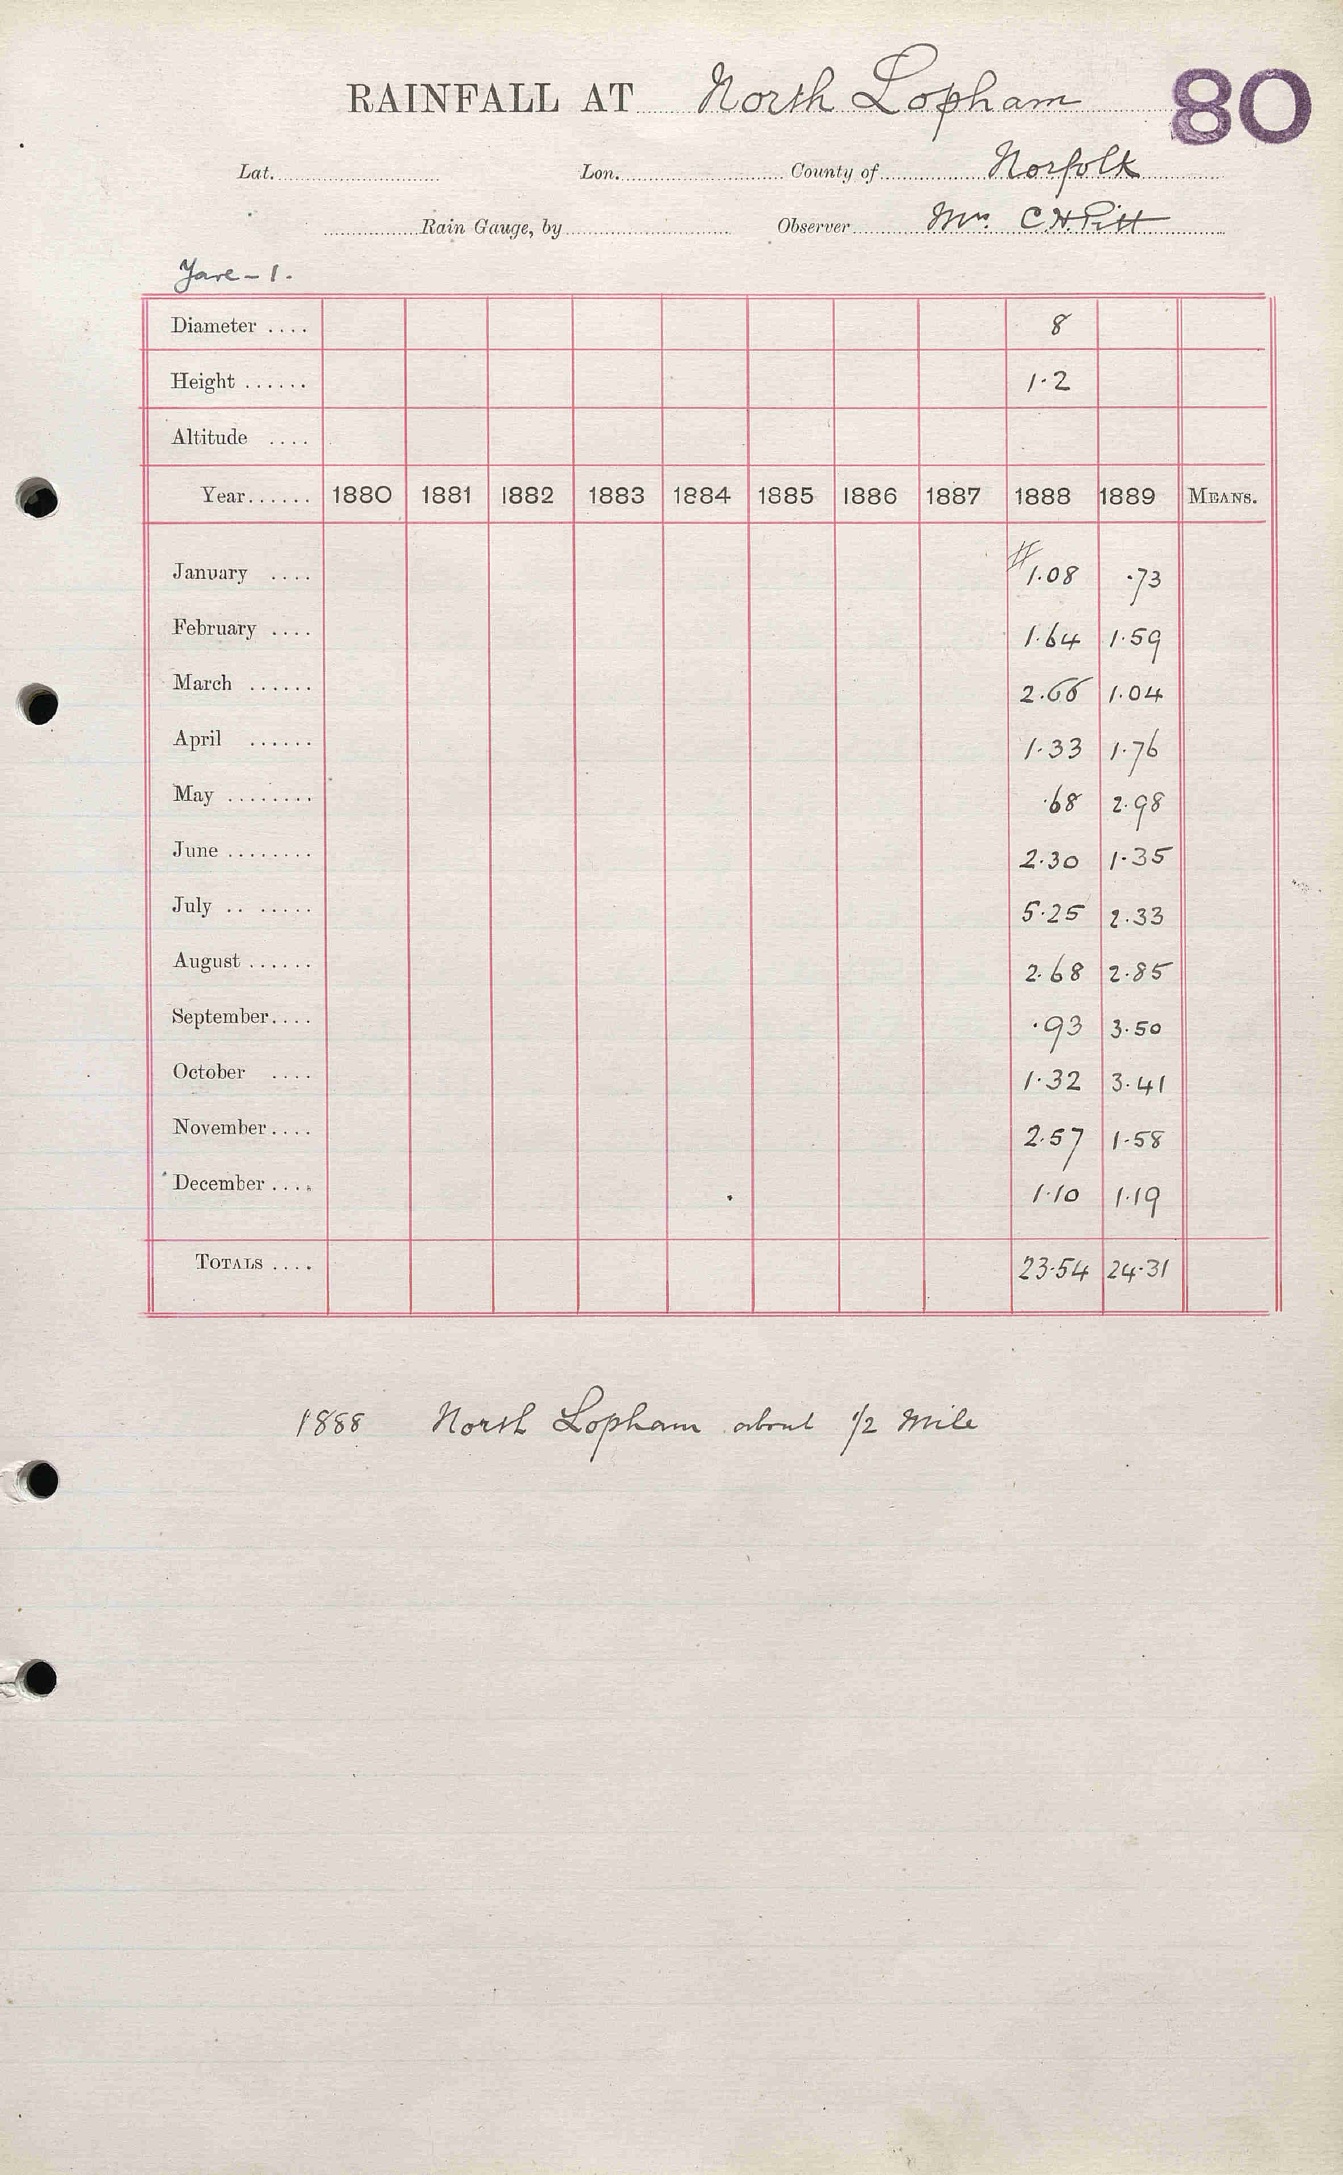 RAINFALL AT North Lopham 80
Lat. Lon. County of Norfolk
Rain Gauge, by Observer Mrs. C.H. Pitt
Yare - 1.
Diameter .... 8
Height ...... 1.2
Altitude ....
Year...... 1880 1881 1882 1883 1884 1885 1886 1887 1888 1889 MEANS.
January .... # 1.08 .73
February .... 1.64 1.59
March ...... 2.66 1.04
April ...... 1.33 1.76
May ........ .68 2.98
June ........ 2.30 1.35
July .. ..... 5.25 2.33
August ...... 2.68 2.85
September.... .93 3.50
October .... 1.32 3.41
November.... 2.57 1.58
December .... 1.10 1.19
TOTALS .... 23.54 24.31
1888 North Lopham about 1/2 Mile